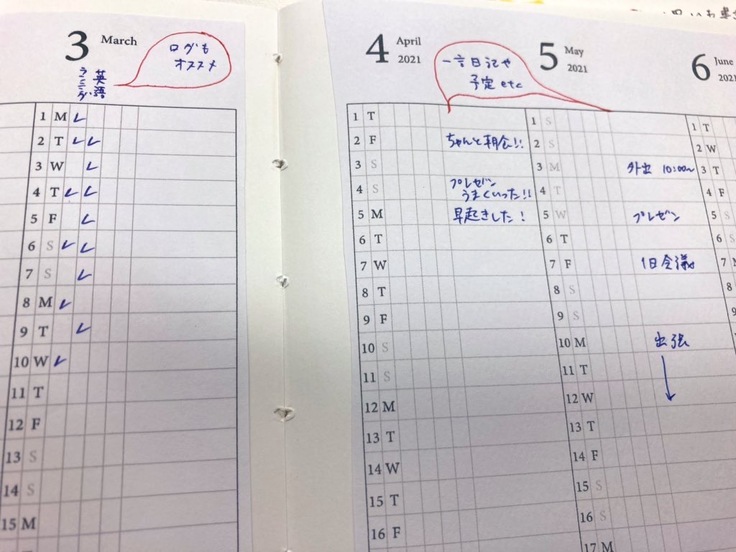 3 March
英語
ログも
オススメ
1 M
2 T
3 W
4 T
5 F
6 S
7 S
8 M
9 T
10 W
11 T
12 F
13 S
14 S
15 M
4 April
2021
一言日記や
予定 etc
1 T
2 F ちゃんと朝会!!
3 S
4 S プレゼン
うまくいった!!
5 M 早起きした!
6 T
7 W
8 T
9 F
10 S
11 S
12 M
13 T
14 W
15 T
16 F
5 May
2021
1 S
2 S
3 M 外出 10:00~
4 T
5 W プレゼン
6 T
7 F 1日会議
8 S
9 S
10 M 出張
11 T
12 W
13 T
14 F
15 S
16 S
17 M
6 June
2021
1 T
2 W
3 T
4 F
5 S
6 S
7 M
8
9
10
11
12